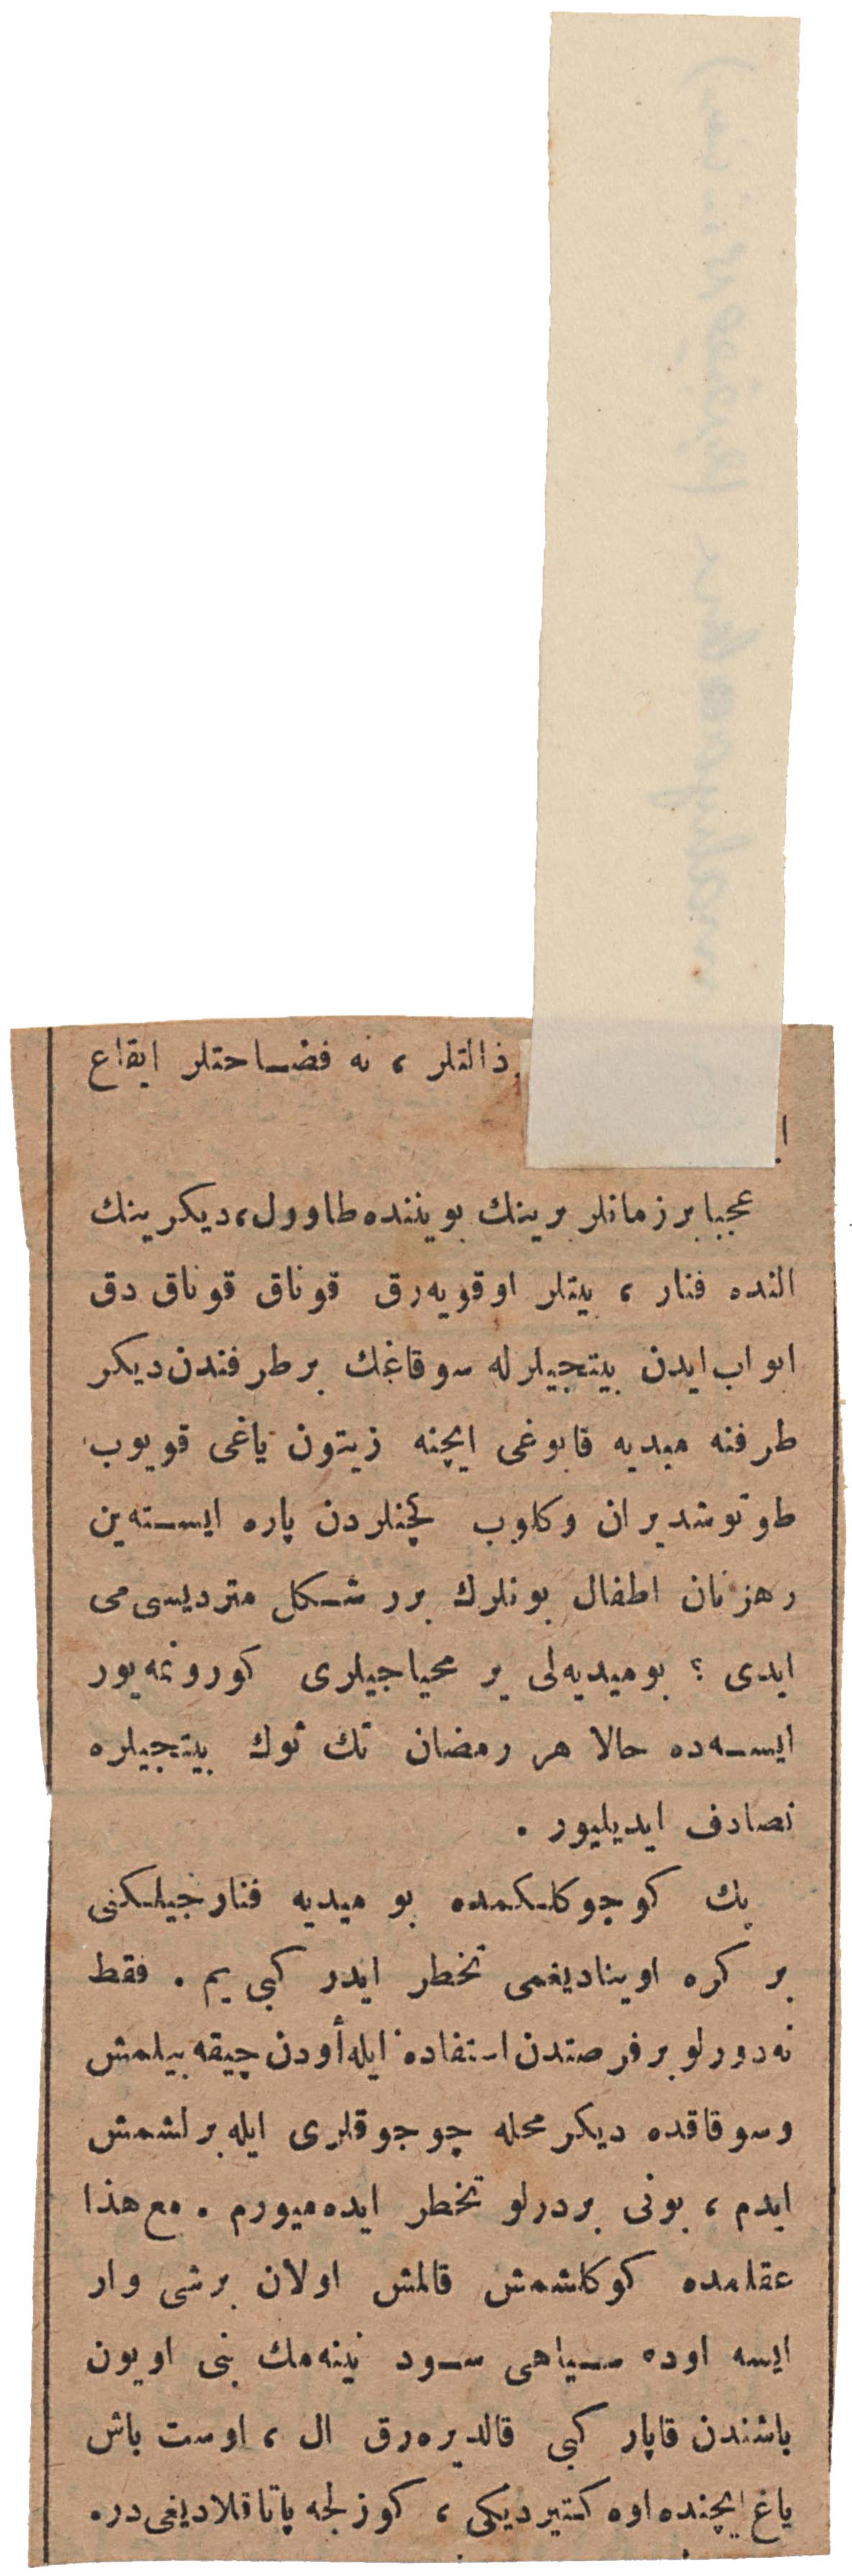 ذالتلر ، نه فضاحتلر ايقاع
ا
عجبا بر زمانلر برينك بويننده طاوول، ديكرينك
النده فنار ، بيتلر اوقويه‌رق قوناق قوناق دق
ابواب ايدن بيتجيلرله سوقاغك بر طرفندن ديكر
طرفنه ميديه قابوغى ايچنه زيتون ياغى قويوب
طوتوشديران وكلوب كچنلردن پاره ايسته‌ين
رهزنان اطفال بونلرك برر شكل مترديسى مى
ايدى ؟ بو ميديه‌لى ير محياجيلرى كورونمه‌يور
ايسه‌ده حالا هر رمضان تك توك بيتجيلره
تصادف ايديليور .
پك كوجوكلكمده بو ميديه فنارجيلكنى
بر كره اوينادیغمى تخطر ايدر كبى يم . فقط
نه دورلو بر فرصتدن استفاده ايله أودن چيقه بيلمش
وسوقاقده ديكر محله چوجوقلرى ايله برلشمش
ايدم ، بونى بردرلو تخطر ايده‌ميورم . مع هذا
عقلمده كوكلشمش قالمش اولان برشى وار
ايسه اوده سياهى سود نينه‌مك بنى اويون
باشندن قاپار كبى قالديره‌رق ال ، اوست باش
ياغ ايچنده اوه كتيرديكى ، كوزلجه پاتاقلاديغى در .